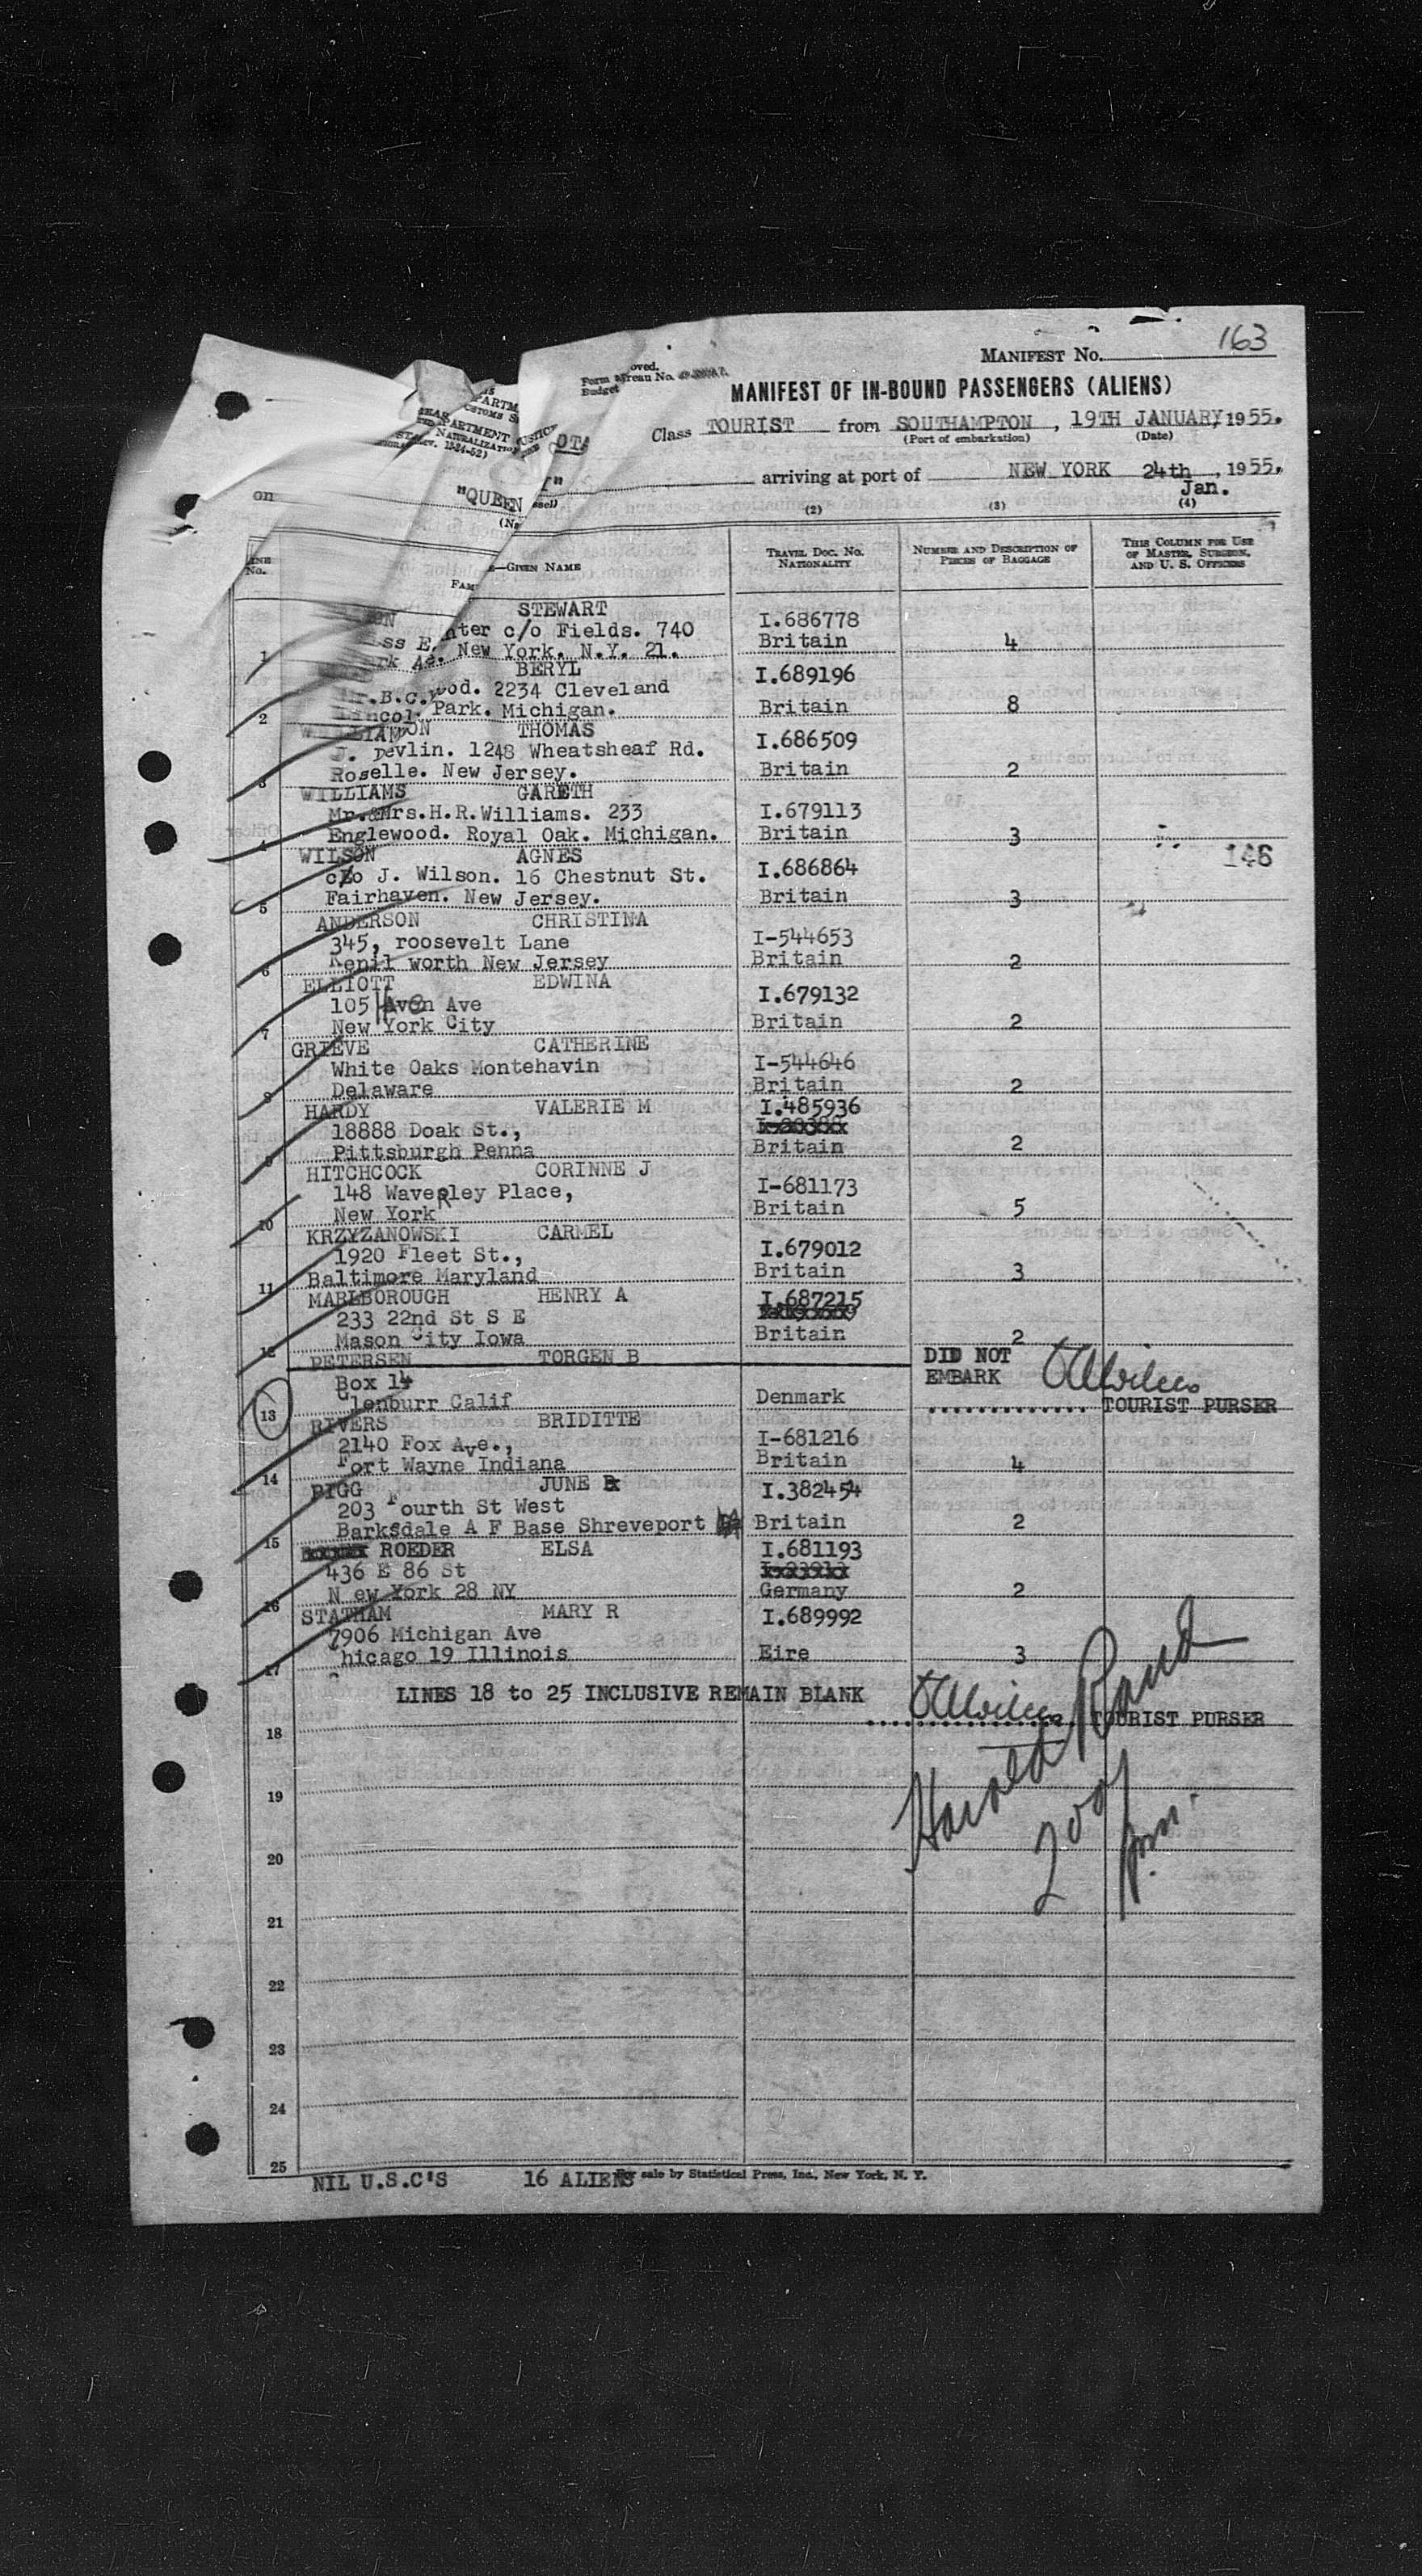 163
MANIFEST No.
oved.
Form reau No.
Budget
MANIFEST OF IN-BOUND PASSENGERS (ALIENS)
Class TOURIST from SOUTHAMPTON , 19TH JANUARY, 1955.
(Port of embarkation) (Date)
on "QUEEN arriving at port of NEW YORK 24th , 1955.
Jan.
(2) (3) (4)
LINE No. FAM —GIVEN NAME TRAVEL DOC. NO. NATIONALITY NUMBER AND DESCRIPTION OF PIECES OF BAGGAGE THIS COLUMN FOR USE OF MASTER, SURGEON, AND U. S. OFFICERS
STEWART I.686778
nter c/o Fields. 740 Britain 4
1 New York. N.Y. 21.
BERYL I.689196
ood. 2234 Cleveland
2 Park. Michigan. Britain 8
THOMAS I.686509
J. Devlin. 1248 Wheatsheaf Rd.
3 Roselle. New Jersey. Britain 2
WILLIAMS GARETH
Mr.&Mrs.H.R.Williams. 233 I.679113
4 Englewood. Royal Oak. Michigan. Britain 3
146
WILSON AGNES
c/o J. Wilson. 16 Chestnut St. I.686864
5 Fairhaven. New Jersey. Britain 3
ANDERSON CHRISTINA
345, roosevelt Lane I-544653
6 Kenil worth New Jersey Britain 2
ELLIOTT EDWINA
105 Haven Ave I.679132
7 New York City Britain 2
GRIEVE CATHERINE
White Oaks Montehavin I-544646
8 Delaware Britain 2
HARDY VALERIE M I.485936
18888 Doak St.,
9 Pittsburgh Penna Britain 2
HITCHCOCK CORINNE J
148 WaveRley Place, I-681173
10 New York Britain 5
KRZYZANOWSKI CARMEL
1920 Fleet St., I.679012
11 Baltimore Maryland Britain 3
MARLBOROUGH HENRY A I.687215
233 22nd St S E
12 Mason City Iowa Britain 2
PETERSEN TORGEN B DID NOT
Box 14 EMBARK
13 Glenburr Calif Denmark TOURIST PURSER
RIVERS BRIDITTE
2140 Fox Ave., I-681216
14 Fort Wayne Indiana Britain 4
PIGG JUNE I.382454
203 Fourth St West
15 Barksdale A F Base Shreveport LA Britain 2
ROEDER ELSA I.681193
436 E 86 St
16 N ew York 28 NY Germany 2
STATHAM MARY R I.689992
7906 Michigan Ave
17 Chicago 19 Illinois Eire 3
LINES 18 to 25 INCLUSIVE REMAIN BLANK
18 TOURIST PURSER
Harold Rand
19
20
21
22
23
24
25
NIL U.S.C'S 16 ALIENS For sale by Statistical Press, Inc., New York, N. Y.